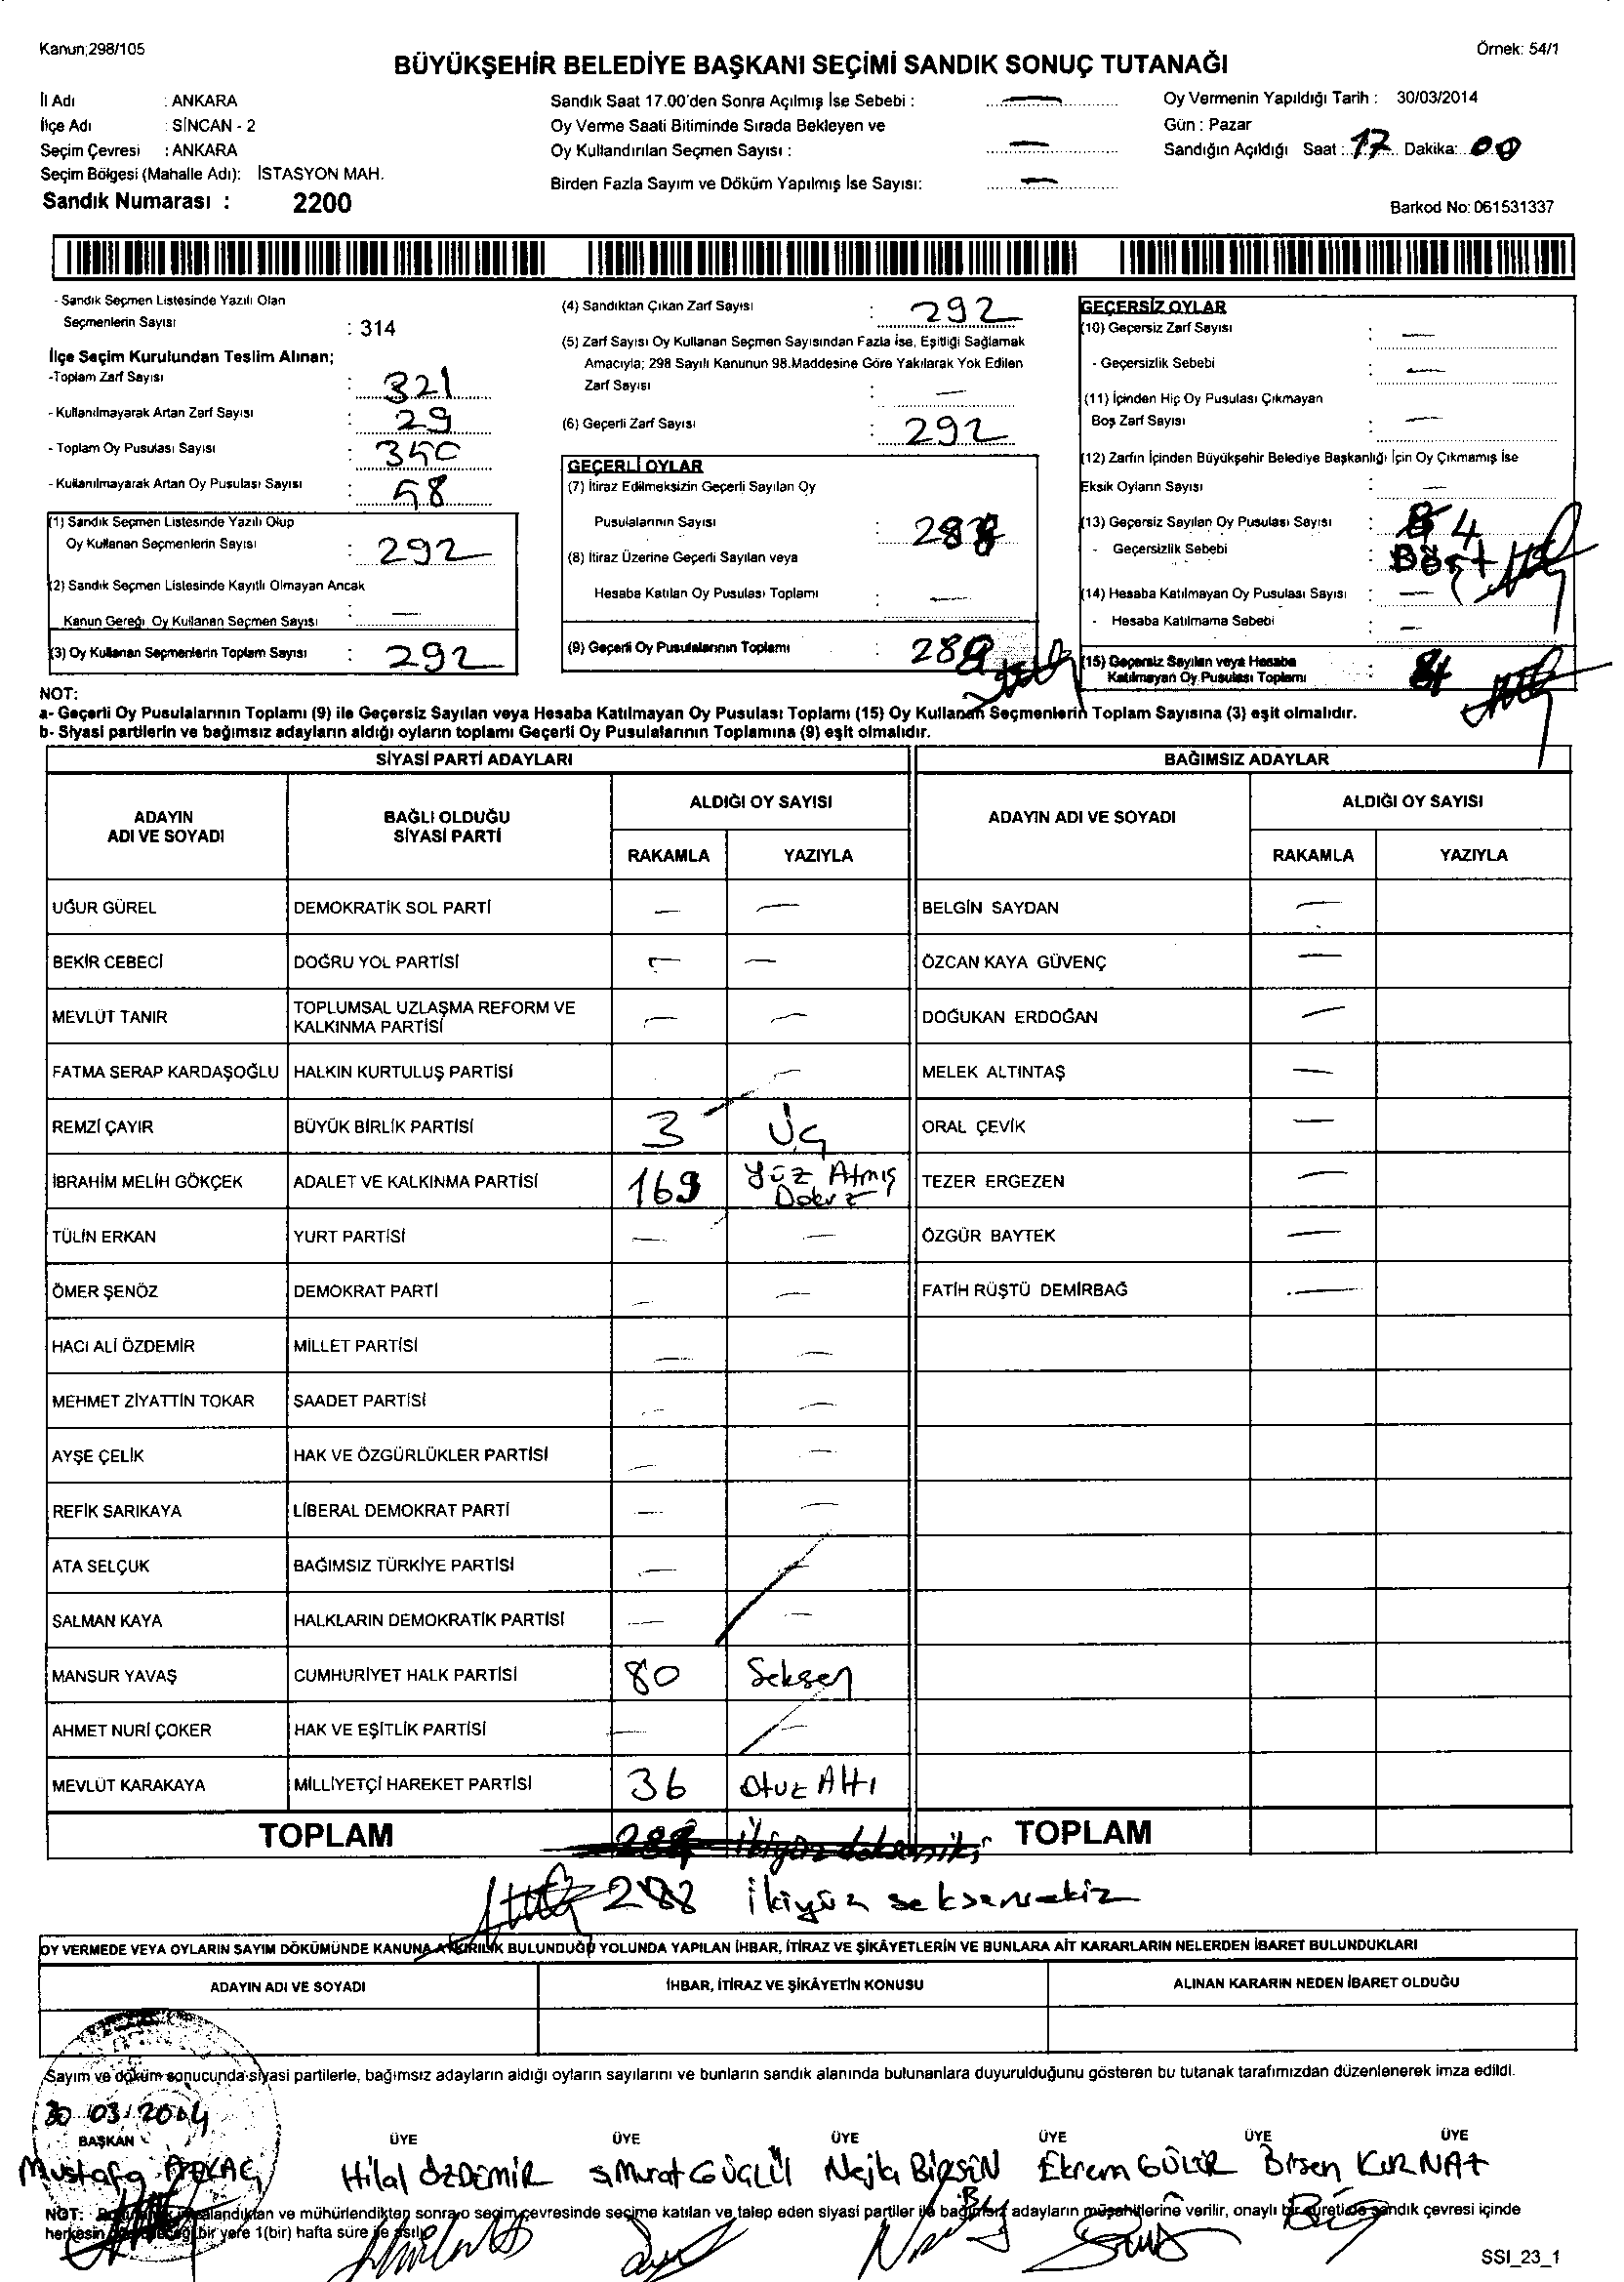 Kanun;298/105
Örnek: 54/1
BÜYÜKŞEHİR BELEDİYE BAŞKANI SEÇİMİ SANDIK SONUÇ TUTANAĞI
İl Adı : ANKARA
İlçe Adı : SİNCAN - 2
Seçim Çevresi : ANKARA
Seçim Bölgesi (Mahalle Adı): İSTASYON MAH.
Sandık Numarası : 2200
Sandık Saat 17.00'den Sonra Açılmış İse Sebebi : —
Oy Verme Saati Bitiminde Sırada Bekleyen ve
Oy Kullandırılan Seçmen Sayısı : —
Birden Fazla Sayım ve Döküm Yapılmış İse Sayısı: —
Oy Vermenin Yapıldığı Tarih : 30/03/2014
Gün : Pazar
Sandığın Açıldığı Saat : 17 Dakika: 00
Barkod No: 061531337
- Sandık Seçmen Listesinde Yazılı Olan
Seçmenlerin Sayısı : 314
İlçe Seçim Kurulundan Teslim Alınan;
-Toplam Zarf Sayısı : 321
- Kullanılmayarak Artan Zarf Sayısı : 29
- Toplam Oy Pusulası Sayısı : 350
- Kullanılmayarak Artan Oy Pusulası Sayısı : 58
(1) Sandık Seçmen Listesinde Yazılı Olup
Oy Kullanan Seçmenlerin Sayısı : 292
(2) Sandık Seçmen Listesinde Kayıtlı Olmayan Ancak
Kanun Gereği Oy Kullanan Seçmen Sayısı : —
(3) Oy Kullanan Seçmenlerin Toplam Sayısı : 292
(4) Sandıktan Çıkan Zarf Sayısı : 292
(5) Zarf Sayısı Oy Kullanan Seçmen Sayısından Fazla ise, Eşitliği Sağlamak
Amacıyla; 298 Sayılı Kanunun 98.Maddesine Göre Yakılarak Yok Edilen
Zarf Sayısı : —
(6) Geçerli Zarf Sayısı : 292
GEÇERLİ OYLAR
(7) İtiraz Edilmeksizin Geçerli Sayılan Oy
Pusulalarının Sayısı : 288
(8) İtiraz Üzerine Geçerli Sayılan veya
Hesaba Katılan Oy Pusulası Toplamı : —
(9) Geçerli Oy Pusulalarının Toplamı : 288
GEÇERSİZ OYLAR
(10) Geçersiz Zarf Sayısı : —
- Geçersizlik Sebebi : —
(11) İçinden Hiç Oy Pusulası Çıkmayan
Boş Zarf Sayısı : —
(12) Zarfın İçinden Büyükşehir Belediye Başkanlığı İçin Oy Çıkmamış İse
Eksik Oyların Sayısı : —
(13) Geçersiz Sayılan Oy Pusulası Sayısı : 4
- Geçersizlik Sebebi :
(14) Hesaba Katılmayan Oy Pusulası Sayısı : —
- Hesaba Katılmama Sebebi : —
(15) Geçersiz Sayılan veya Hesaba
Katılmayan Oy Pusulası Toplamı : 4
NOT:
a- Geçerli Oy Pusulalarının Toplamı (9) ile Geçersiz Sayılan veya Hesaba Katılmayan Oy Pusulası Toplamı (15) Oy Kullanan Seçmenlerin Toplam Sayısına (3) eşit olmalıdır.
b- Siyasi partilerin ve bağımsız adayların aldığı oyların toplamı Geçerli Oy Pusulalarının Toplamına (9) eşit olmalıdır.
SİYASİ PARTİ ADAYLARI
ADAYIN ADI VE SOYADI BAĞLI OLDUĞU SİYASİ PARTİ ALDIĞI OY SAYISI
RAKAMLA YAZIYLA
UĞUR GÜREL DEMOKRATİK SOL PARTİ — —
BEKİR CEBECİ DOĞRU YOL PARTİSİ — —
MEVLÜT TANIR TOPLUMSAL UZLAŞMA REFORM VE KALKINMA PARTİSİ — —
FATMA SERAP KARDAŞOĞLU HALKIN KURTULUŞ PARTİSİ —
REMZİ ÇAYIR BÜYÜK BİRLİK PARTİSİ 3 Üç
İBRAHİM MELİH GÖKÇEK ADALET VE KALKINMA PARTİSİ 169 Yüz Atmış Dokuz
TÜLİN ERKAN YURT PARTİSİ — —
ÖMER ŞENÖZ DEMOKRAT PARTİ — —
HACI ALİ ÖZDEMİR MİLLET PARTİSİ — —
MEHMET ZİYATTİN TOKAR SAADET PARTİSİ — —
AYŞE ÇELİK HAK VE ÖZGÜRLÜKLER PARTİSİ — —
REFİK SARIKAYA LİBERAL DEMOKRAT PARTİ — —
ATA SELÇUK BAĞIMSIZ TÜRKİYE PARTİSİ — —
SALMAN KAYA HALKLARIN DEMOKRATİK PARTİSİ — —
MANSUR YAVAŞ CUMHURİYET HALK PARTİSİ 80 Seksen
AHMET NURİ ÇOKER HAK VE EŞİTLİK PARTİSİ — —
MEVLÜT KARAKAYA MİLLİYETÇİ HAREKET PARTİSİ 36 Otuz Altı
TOPLAM ikiyüz doksaniki
288 ikiyüz seksensekiz
BAĞIMSIZ ADAYLAR
ADAYIN ADI VE SOYADI ALDIĞI OY SAYISI
RAKAMLA YAZIYLA
BELGİN SAYDAN —
ÖZCAN KAYA GÜVENÇ —
DOĞUKAN ERDOĞAN —
MELEK ALTINTAŞ —
ORAL ÇEVİK —
TEZER ERGEZEN —
ÖZGÜR BAYTEK —
FATİH RÜŞTÜ DEMİRBAĞ —
TOPLAM
OY VERMEDE VEYA OYLARIN SAYIM DÖKÜMÜNDE KANUNA AYKIRILIK BULUNDUĞU YOLUNDA YAPILAN İHBAR, İTİRAZ VE ŞİKÂYETLERİN VE BUNLARA AİT KARARLARIN NELERDEN İBARET BULUNDUKLARI
ADAYIN ADI VE SOYADI İHBAR, İTİRAZ VE ŞİKÂYETİN KONUSU ALINAN KARARIN NEDEN İBARET OLDUĞU
Sayım ve döküm sonucunda siyasi partilerle, bağımsız adayların aldığı oyların sayılarını ve bunların sandık alanında bulunanlara duyurulduğunu gösteren bu tutanak tarafımızdan düzenlenerek imza edildi.
30/03/2014
BAŞKAN ÜYE ÜYE ÜYE ÜYE ÜYE ÜYE
Mustafa Hilal ÖZDEMİR Murat GÜÇLÜ Nejla BİRSİN Ekrem GÜLER Birsen
NOT: ve mühürlendikten sonra o seçim çevresinde seçime katılan ve talep eden siyasi partiler ile bağımsız adayların müşahitlerine verilir, onaylı bir sureti de sandık çevresi içinde
herkesin bir yere 1(bir) hafta süre ile asılır.
SSI_23_1